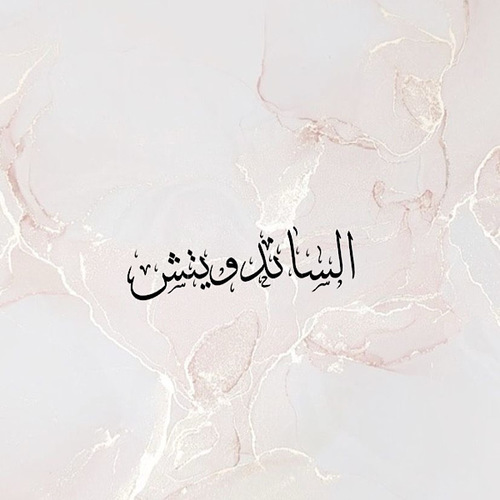 الساندويتش